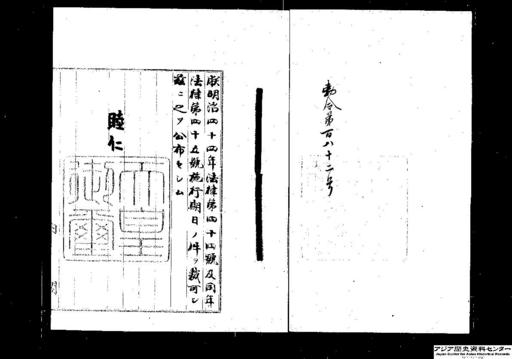 勅令第百八十二号
朕明治四十四年法律第四十四號及同年
法律第四十五號施行期日ノ件ヲ裁可シ
茲ニ之ヲ公布セシム
睦仁
天皇御璽
内閣
アジア歴史資料センター
Japan Center for Asian Historical Records